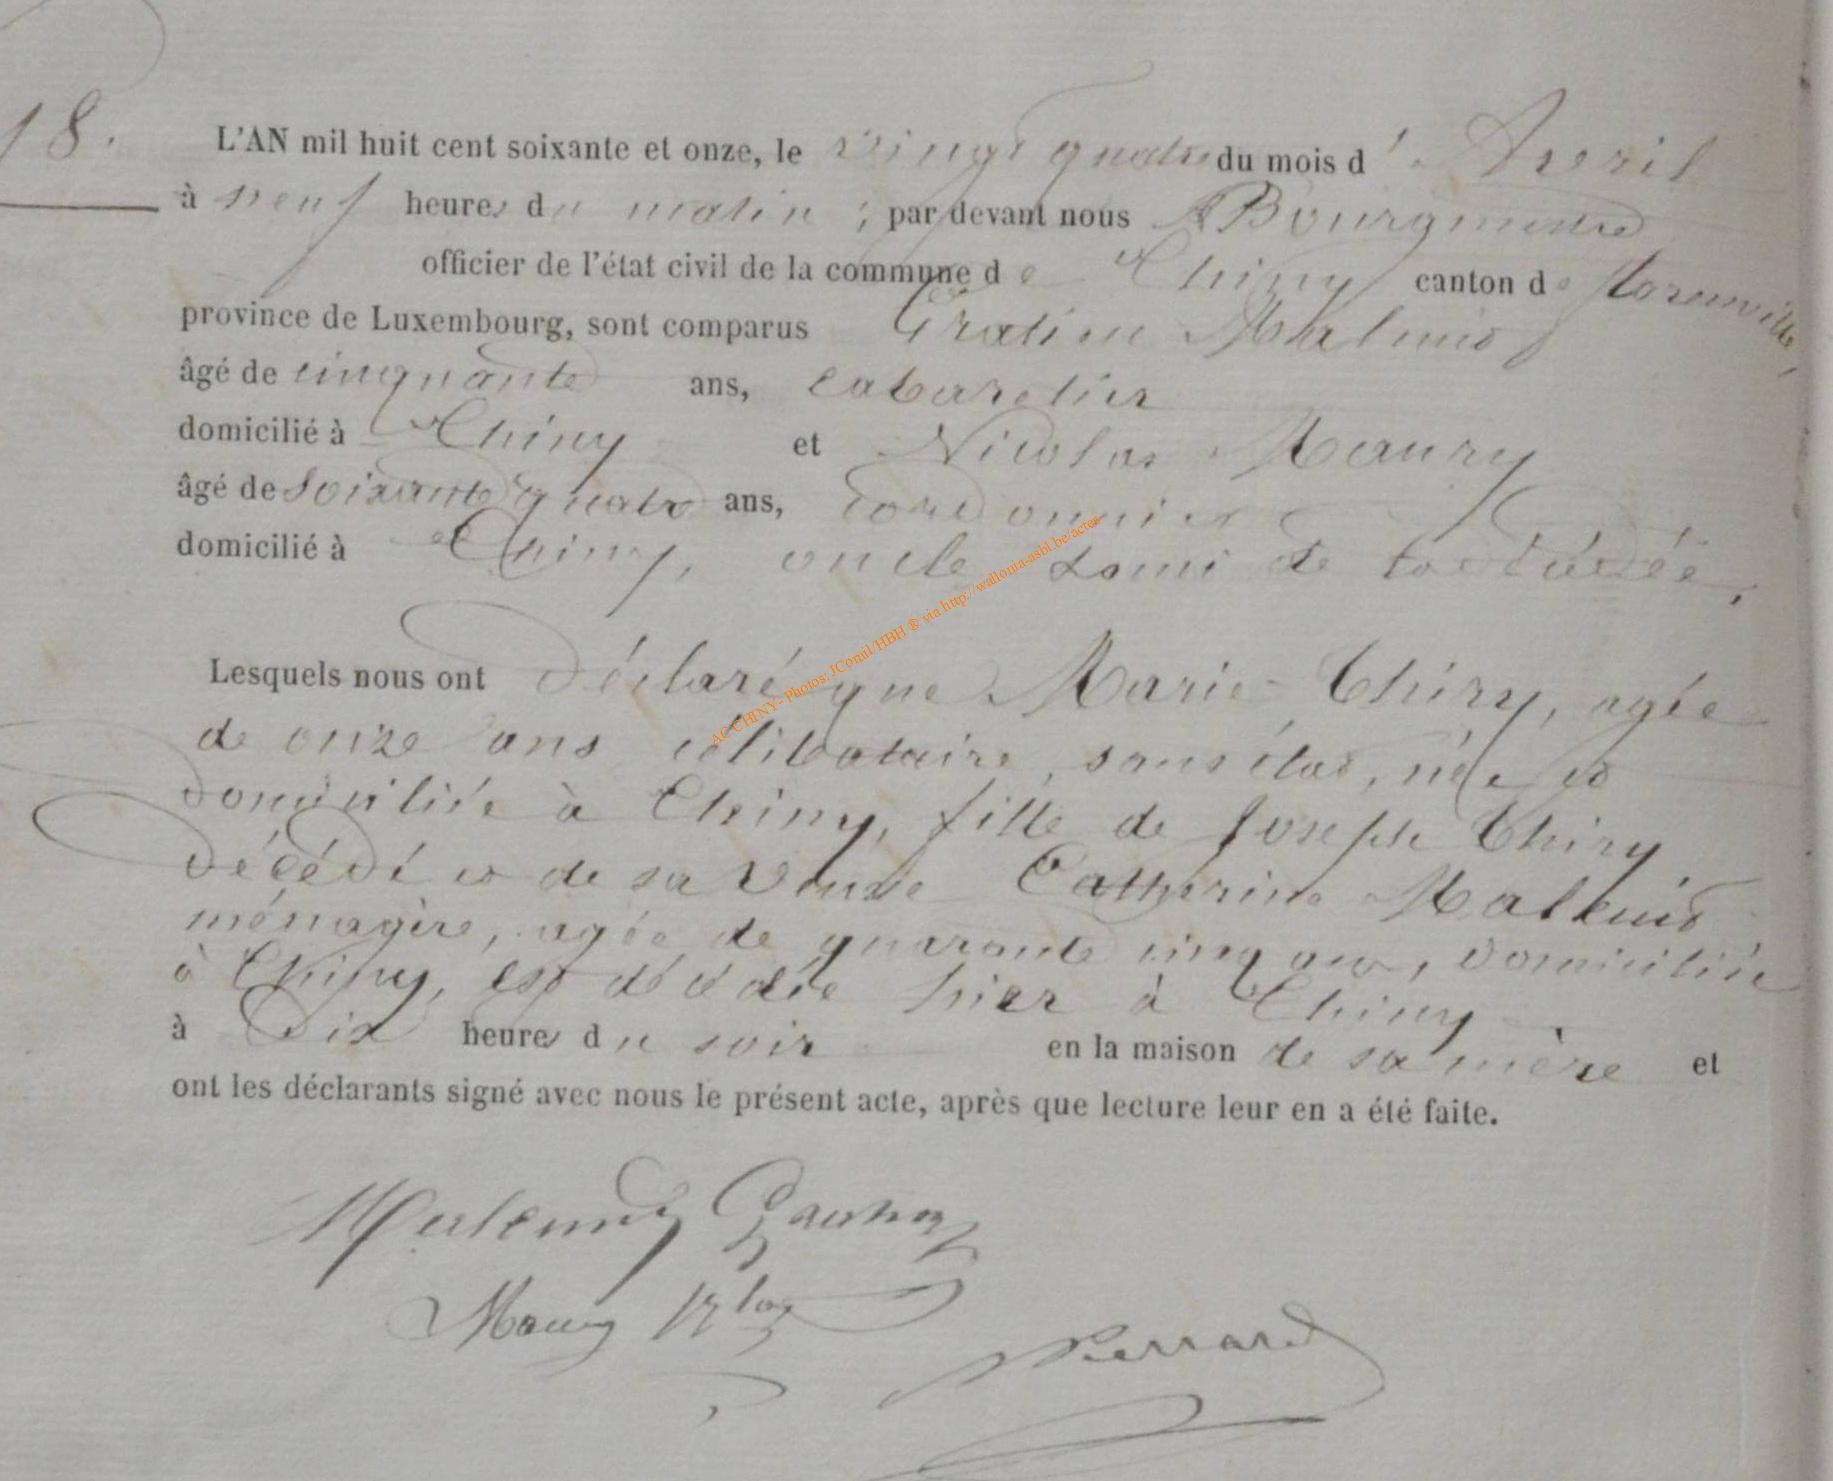 18.
L'AN mil huit cent soixante et onze, le vingt quatre du mois d'Avril
à neuf heures du matin ; par devant nous Bourgmestre
officier de l'état civil de la commune de Chiny canton de florenville,
province de Luxembourg, sont comparus Gratien Malmis
âgé de cinquante ans, cabaretier
domicilié à Chiny et Nicolas Maury
âgé de soixante quatre ans, cordonnier
domicilié à Chiny, oncle & ami de la décédée,
Lesquels nous ont déclaré que Marie Thiry, agée
de onze ans célibataire, sans état, née et
domiciliée à Chiny, fille de Joseph Thiry
décédé et de sa veuve Catherine Malmis
ménagère, agée de quarante cinq ans, domiciliée
à Chiny, est décédée hier à Chiny
à Dix heures du soir en la maison de sa mère et
ont les déclarants signé avec nous le présent acte, après que lecture leur en a été faite.
Maury Nlas
Perrard
AC CHINY - Photos: JComil/HBH ® via http://wallonia-asbl.be/actes